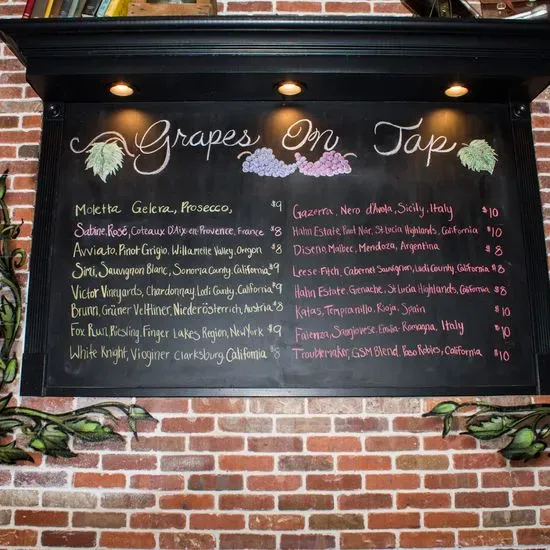 Grapes On Tap
Moletta Gelera, Prosecco, $9
Sabine, Rosé, Coteaux D'Aix-en-Provence, France $8
Avviato, Pinot Grigio, Willamette Valley, Oregon $8
Simi, Sauvignon Blanc, Sonoma County, California $9
Victor Vineyards, Chardonnay Lodi County, California $9
Brunn, Grüner Veltliner, Niederösterreich, Austria $8
Fox Run, Riesling, Finger Lakes Region, New York $9
White Knight, Vioginer Clarksburg, California $8
Gazerra, Nero d'Avola, Sicily, Italy $10
Hahn Estate, Pinot Noir, St Lucia Highlands, California $10
Diseno, Malbec, Mendoza, Argentina $8
Leese-Fitch, Cabernet Sauvignon, Lodi County, California $8
Hahn Estate, Genache, St Lucia Highlands, California $8
Katas, Tempranillo, Rioja, Spain $10
Faienza, Sangiovese, Emilia-Romagna, Italy $10
Troublemaker, GSM Blend, Paso Robles, California $10